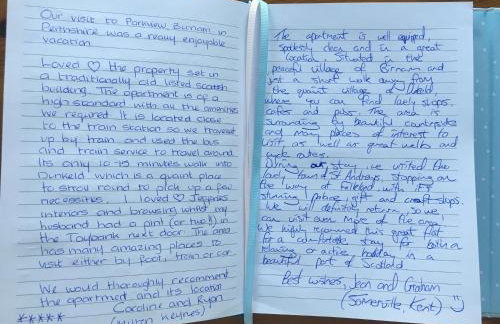 Our visit to Parkview, Birnam in
Perthshire was a really enjoyable
vacation.
Loved ♡ the property set in
a traditionally old listed scottish
building. The apartment is of a
high standard with all the amenities
we required. It is located close
to the train station so we travelled
up by train and used the bus
and train service to travel around.
Its only 10-15 minutes walk into
Dunkeld which is a quaint place
to stroll round to pick up a few
necessities. I loved ♡ Jeffries
interiors and browsing whilst my
husband had a pint (or two!) in
the Taybank next door. The area
has many amazing places to
visit either by foot, train or car.
We would thoroughly recommend
the apartment and its location
Caroline and Ryan
★★★★★ (Milton Keynes)
The apartment is well equipped,
spotlessly clean and in a great
location. Situated in the
peaceful village of Birnam and
just a short walk away from
the quaint village of Dunkeld,
where you can find lovely shops,
cafes and pubs. The area
surrounding has beautiful countryside
and many places of interest to
visit, as well as great walks and
cycle routes.
During our stay, we visited the
lovely town of St Andrews, stopping on
the way at Falkland with its
stunning palace, gift and craft shops.
We will definitely return so we
can visit even more of the area.
We highly recommend this great flat
for a comfortable stay for both a
relaxing or active holiday in a
beautiful part of Scotland
Best wishes, Jean and Graham
(Somerville, Kent) :)